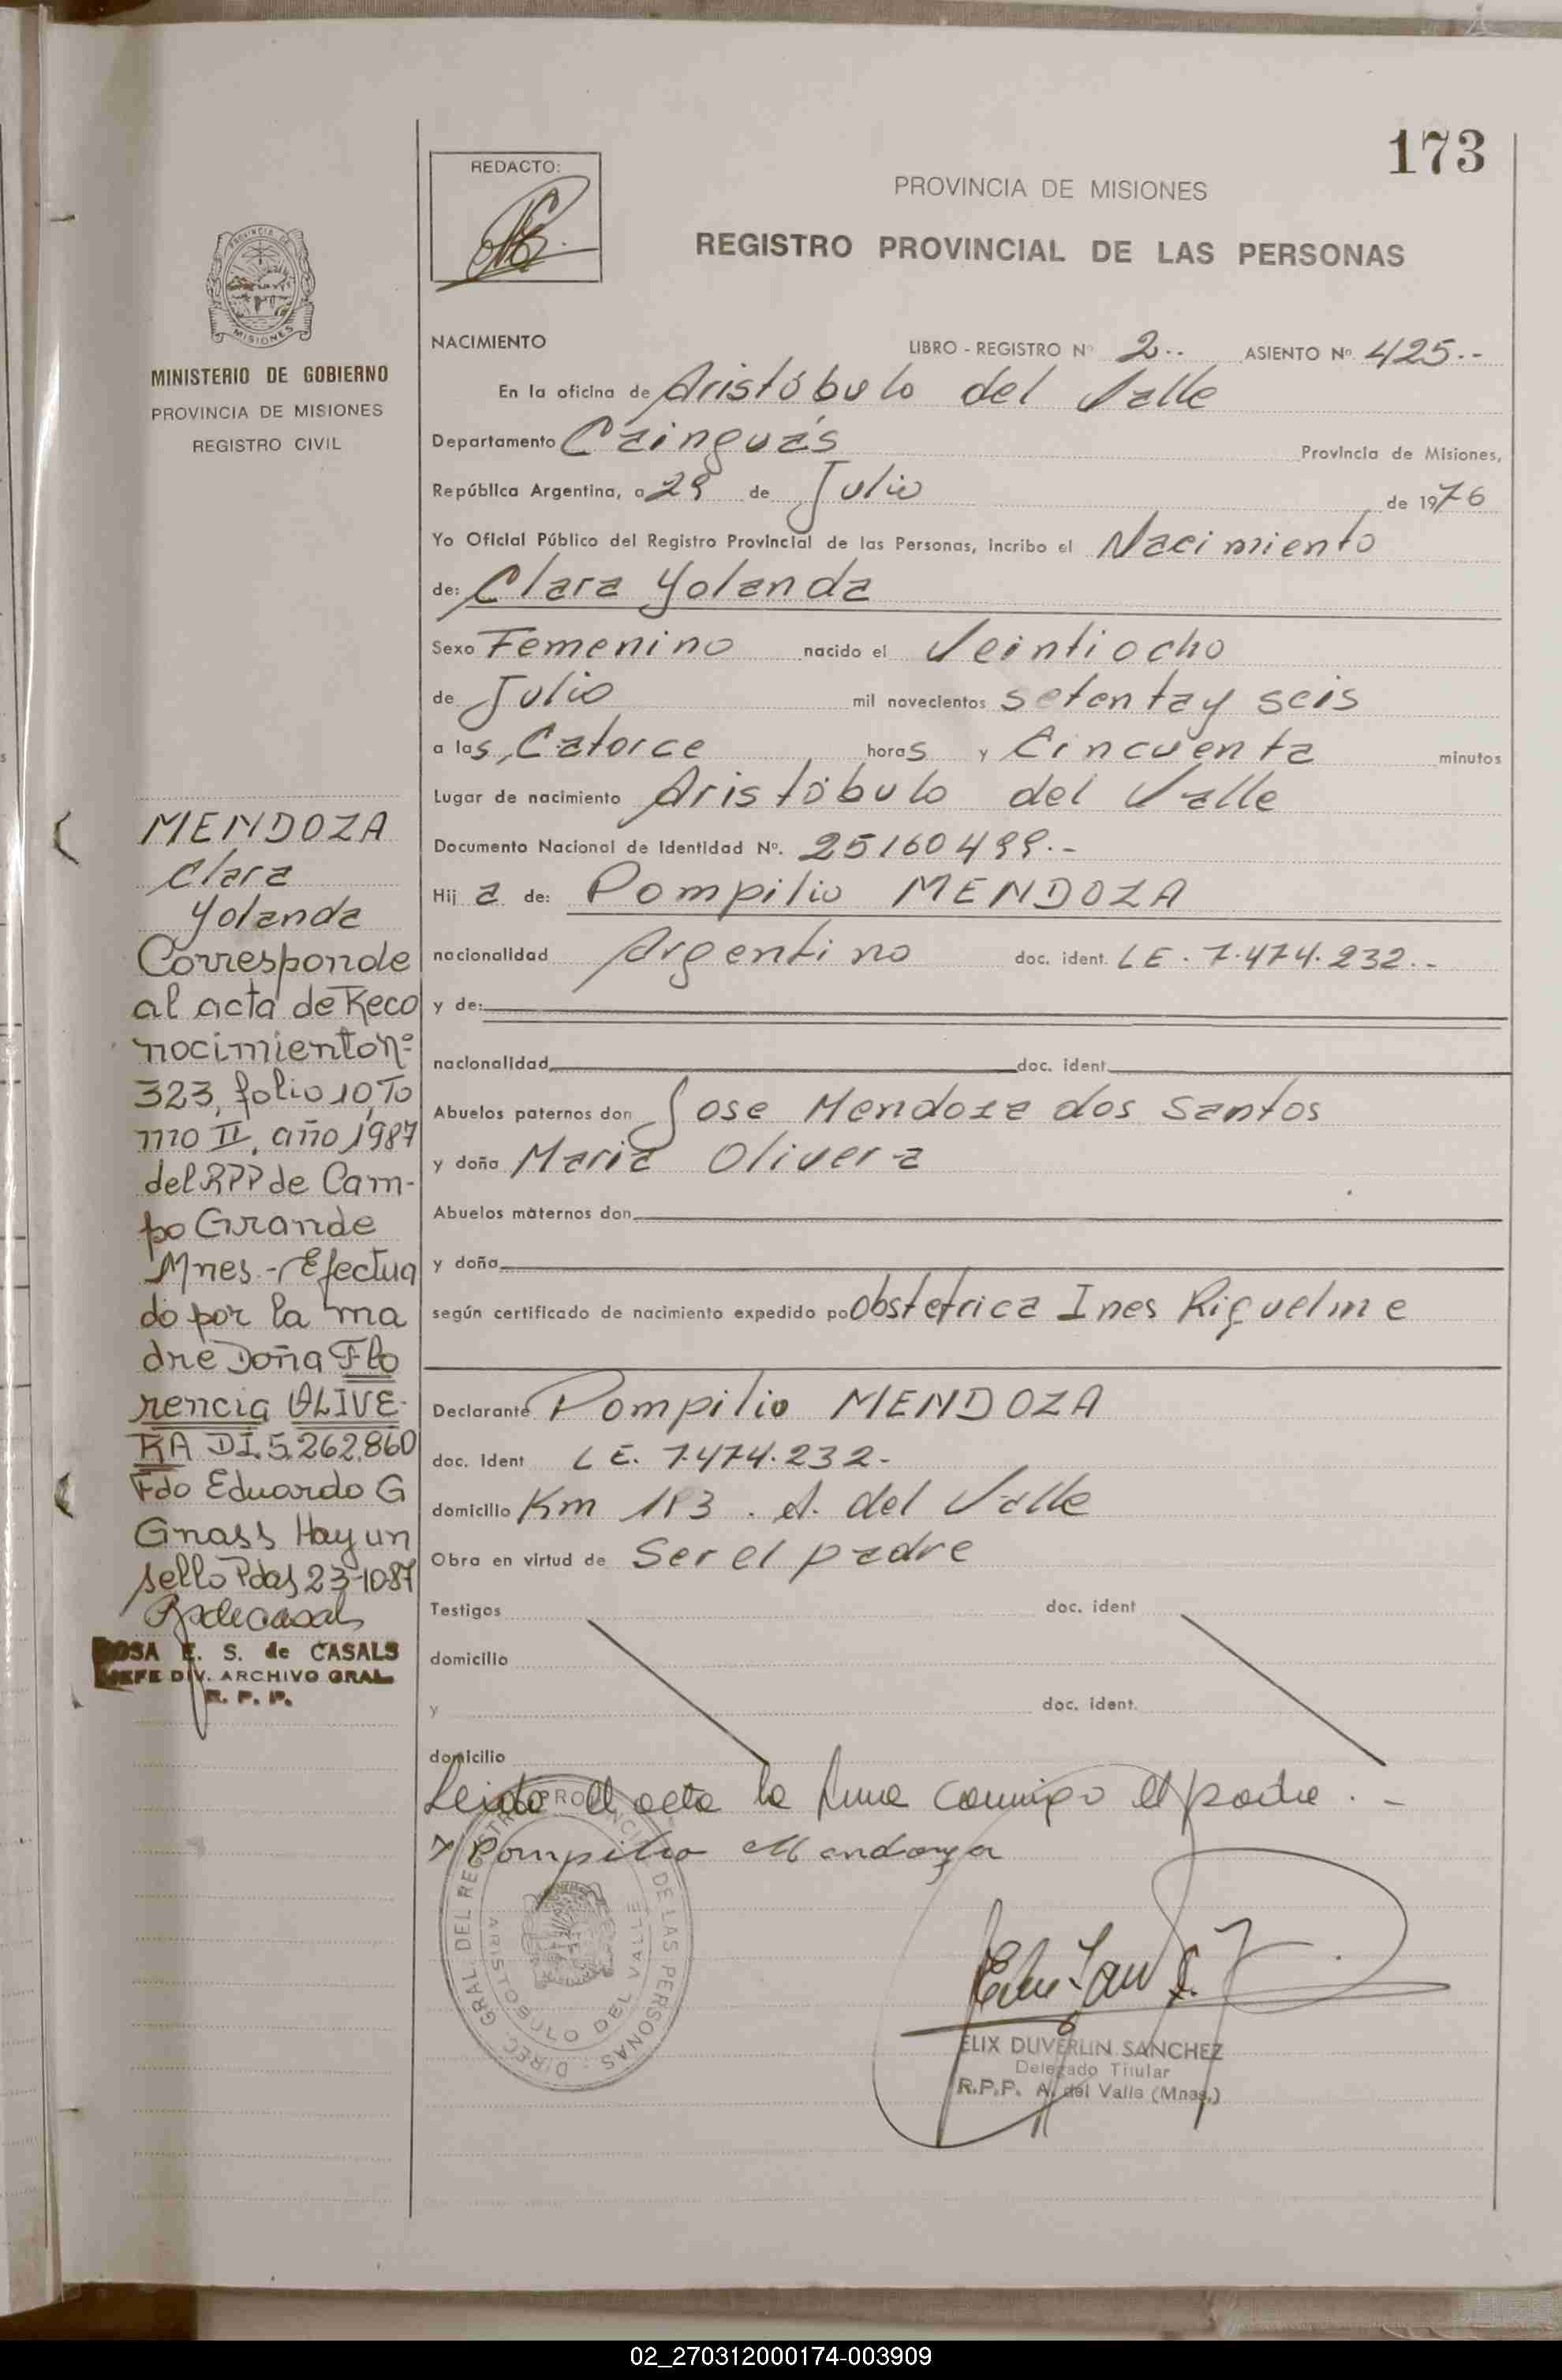 173
REDACTO:
PROVINCIA DE MISIONES
REGISTRO PROVINCIAL DE LAS PERSONAS
PROVINCIA DE
MISIONES
MINISTERIO DE GOBIERNO
PROVINCIA DE MISIONES
REGISTRO CIVIL
NACIMIENTO LIBRO - REGISTRO Nº 2.. ASIENTO Nº 425.-
En la oficina de Aristóbulo del Valle
Departamento Cainguás Provincia de Misiones,
República Argentina, a 29 de Julio de 1976
Yo Oficial Público del Registro Provincial de las Personas, incribo el Nacimiento
de: Clara Yolanda
Sexo Femenino nacido el Veintiocho
de Julio mil novecientos setenta y seis
a las, Catorce horas y Cincuenta minutos
Lugar de nacimiento Aristóbulo del Valle
Documento Nacional de Identidad Nº. 25160499.-
Hij a de: Pompilio MENDOZA
nacionalidad Argentino doc. ident. LE. 7.474.232.-
y de:
nacionalidad doc. ident
Abuelos paternos don Jose Mendoza dos Santos
y doña Maria Olivera
Abuelos maternos don
y doña
según certificado de nacimiento expedido po Obstetrica Ines Riquelme
Declarante Pompilio MENDOZA
doc. Ident LE. 7.474.232-
domicilio Km 183. A. del Valle
Obra en virtud de Ser el padre
Testigos doc. ident
domicilio
y doc. ident.
domicilio
Leida el acta la firma conmigo el padre.-
x Pompilio Mendoza
DIREC. GRAL. DEL REGISTRO PROVINCIAL DE LAS PERSONAS
ARISTOBULO DEL VALLE
ELIX DUVERLIN SANCHEZ
Delegado Titular
R.P.P. A. del Valle (Mnes.)
MENDOZA
Clara
Yolanda
Corresponde
al acta de Reco
nocimiento nº
323, folio 10, To
mo II, año 1987
del RPP de Cam-
po Grande
Mnes.- Efectua
do por la ma
dre Doña Flo
rencia OLIVE-
RA DI. 5.262.860
Fdo Eduardo G
Gnass Hay un
sello Pdas 23-10-87
ROSA E. S. de CASALS
JEFE DIV. ARCHIVO GRAL
R. P. P.
02_270312000174-003909